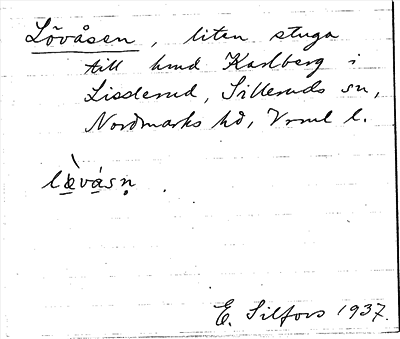 Lövåsen, liten stuga
till hmd Karlberg i
Lisslerud, Silleruds sn,
Nordmarks hd, Vrml l.
lǜvá̱sn̥.
E. Silfors 1937.